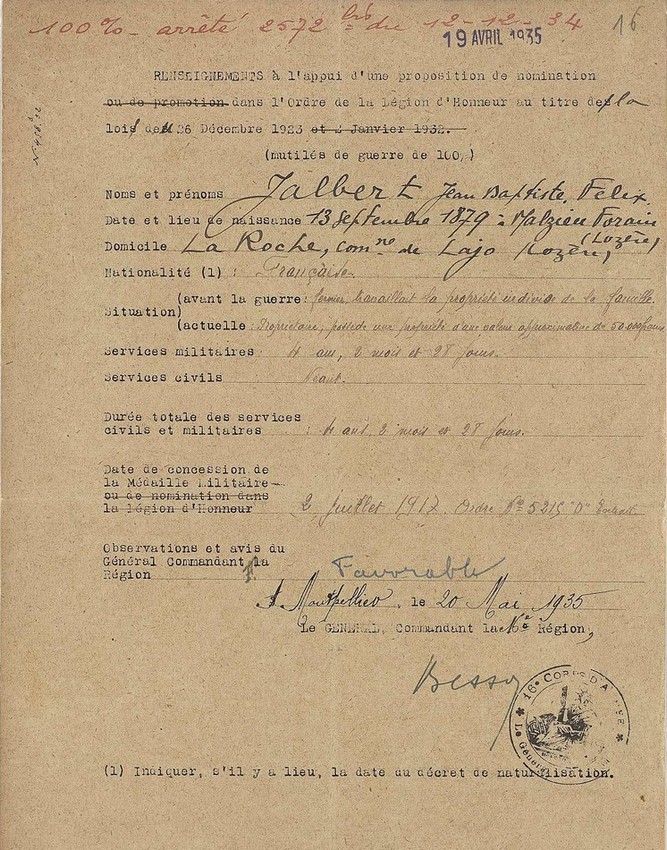 100% - arrêté 2572 bis du 12-12-34
16
19 AVRIL 1935
RENSEIGNEMENTS à l'appui d'une proposition de nomination
ou de promotion dans l'Ordre de la Légion d'Honneur au titre de la
loi du 26 Décembre 1923 et 2 Janvier 1932.
(mutilés de guerre de 100%)
Noms et prénoms Jalbert Jean Baptiste, Felix
Date et lieu de naissance 13 septembre 1879 à Malzieu Forain
(Lozère)
Domicile La Roche, comne de Lajo (Lozère)
Nationalité (1) : Française
Situation) (avant la guerre: fermier, travaillait la propriété indivise de la famille
(actuelle : Propriétaire, possède une propriété d'une valeur approximative de 50.000 francs
Services militaires : 4 ans, 2 mois et 28 jours.
Services civils Néant.
Durée totale des services
civils et militaires : 4 ans 2 mois et 28 jours.
Date de concession de
la Médaille Militaire
ou de nomination dans
la Légion d'Honneur 2 Juillet 1917 Ordre No 5215 "D" Extrait
Observations et avis du
Général Commandant la
Région Favorable
A Montpellier, le 20 Mai 1935
Le GENERAL, Commandant la Région,
16e CORPS D'ARMEE
Le Général
(1) Indiquer, s'il y a lieu, la date du décret de naturalisation.